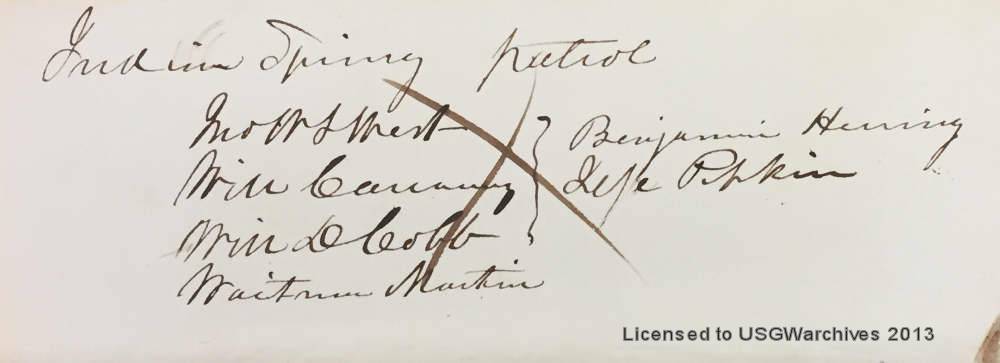 Indian Spring patrol
Jno W S West
Will Carraway
Will D Cobb
Waitman Martin
Benjamin Herring
Jesse Pipkin
Licensed to USGWarchives 2013